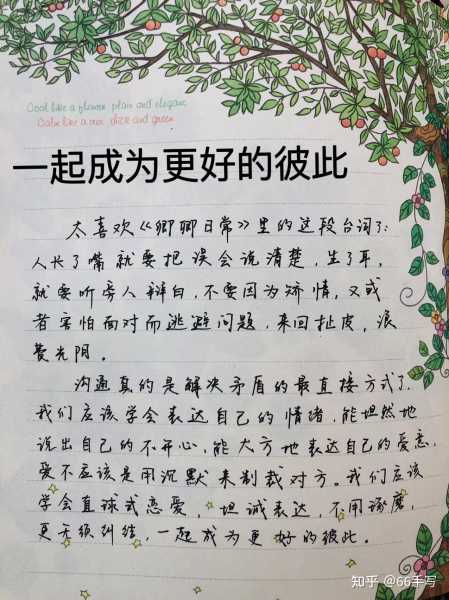 Cool like a flower plain and elegant
Calm like a tree nice and green
一起成为更好的彼此
太喜欢《卿卿日常》里的这段台词了:
人长了嘴就要把误会说清楚,生了耳,
就要听旁人辩白,不要因为矫情,又或
者害怕面对而逃避问题,来回扯皮,浪
费光阴。
沟通真的是解决矛盾的最直接方式了,
我们应该学会表达自己的情绪,能坦然地
说出自己的不开心,能大方地表达自己的爱意,
爱不应该是用沉默来制裁对方。我们应该
学会直球式恋爱,坦诚表达,不用琢磨,
更无须纠结,一起成为更好的彼此。
知乎 @66手写